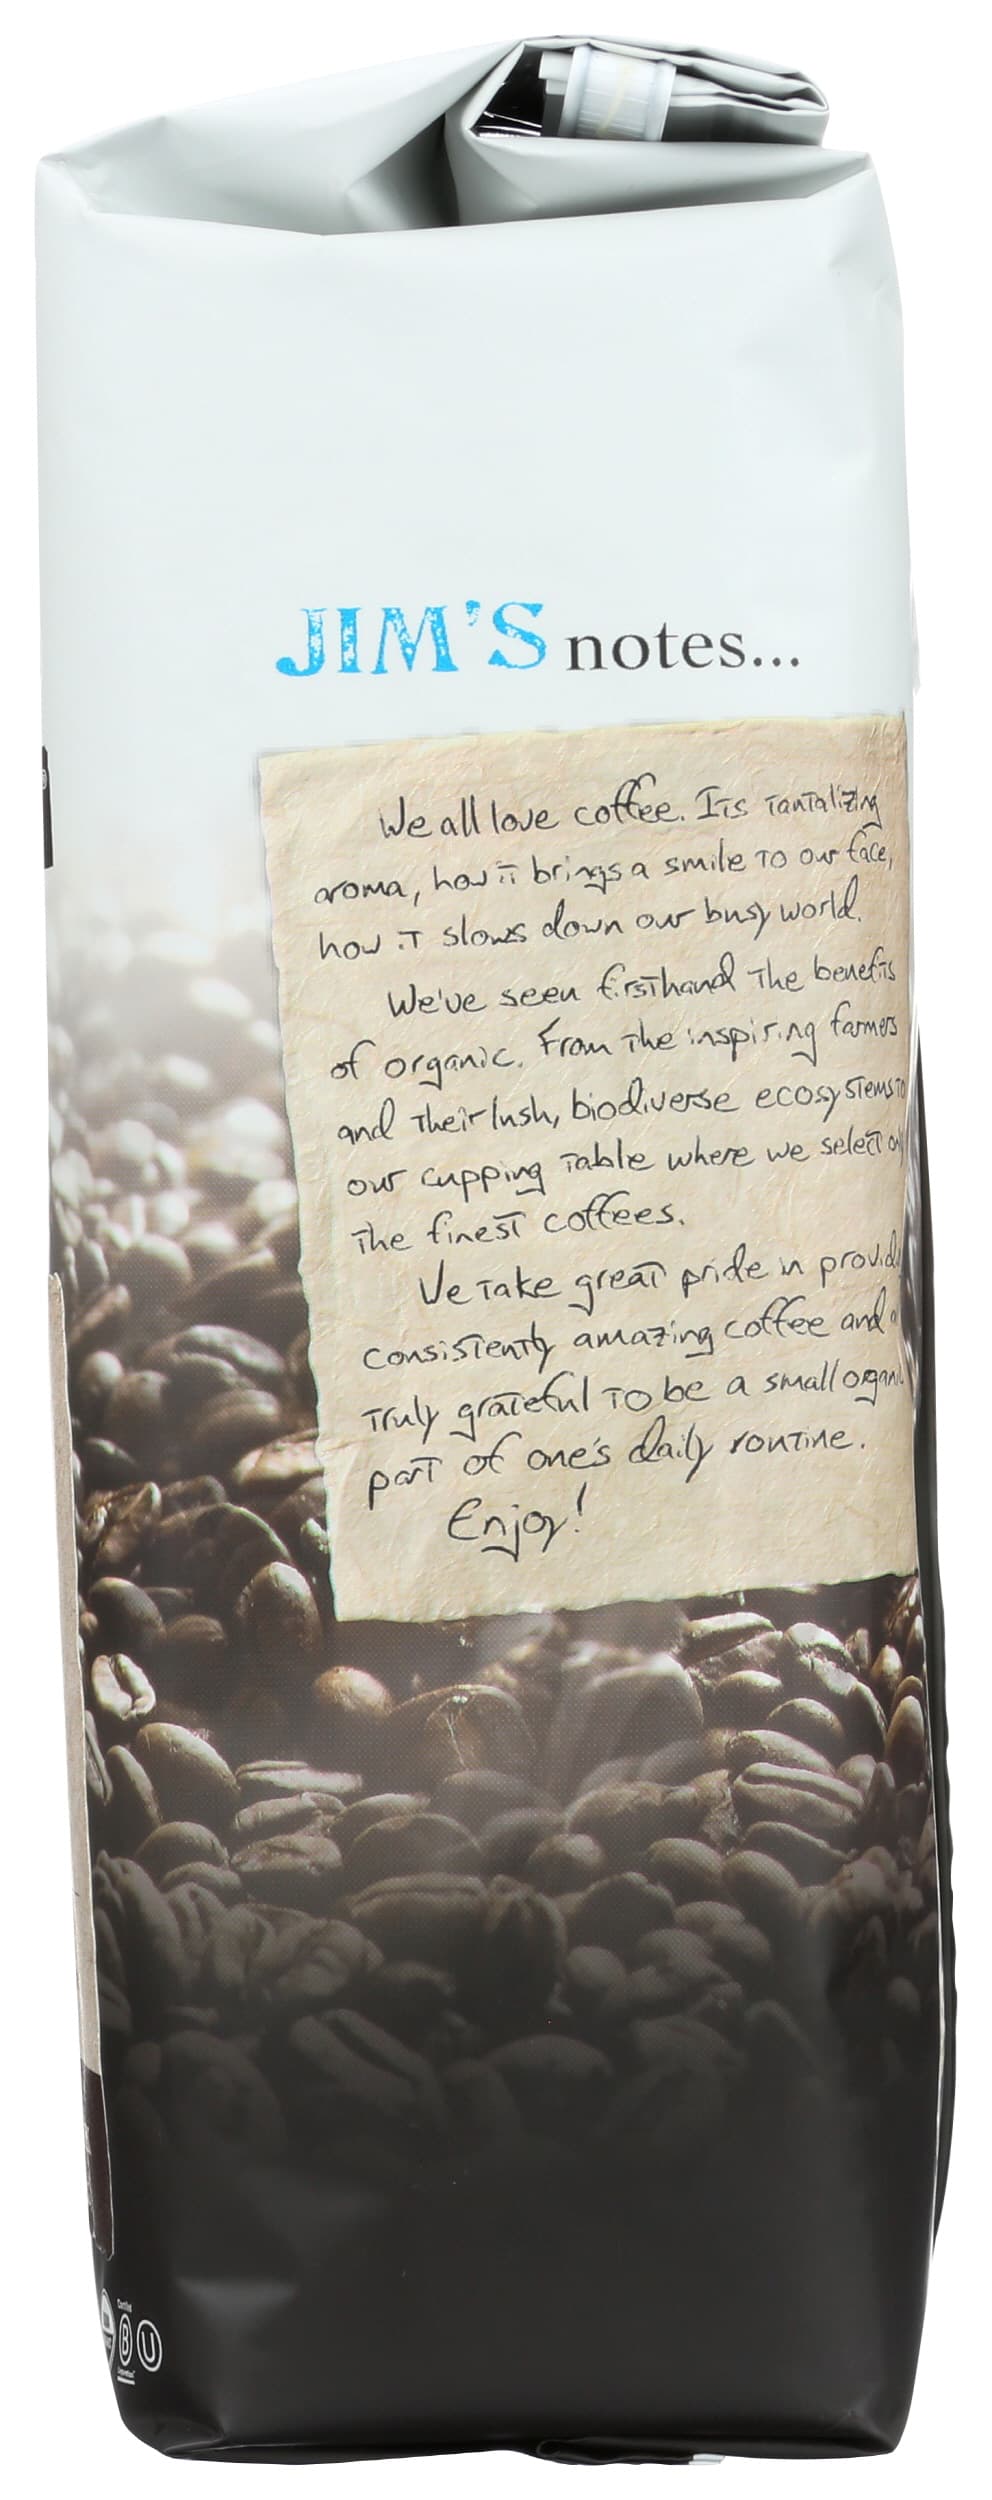 JIM'S notes...
We all love coffee. Its tantalizing
aroma, how it brings a smile to our face,
how it slows down our busy world.
We've seen firsthand the benefits
of organic. From the inspiring farmers
and their lush, biodiverse ecosystems to
our cupping table where we select only
the finest coffees.
We take great pride in
consistently amazing coffee and
truly grateful to be a small organic
part of one's daily routine.
Enjoy!
Certified
B
Corporation
U